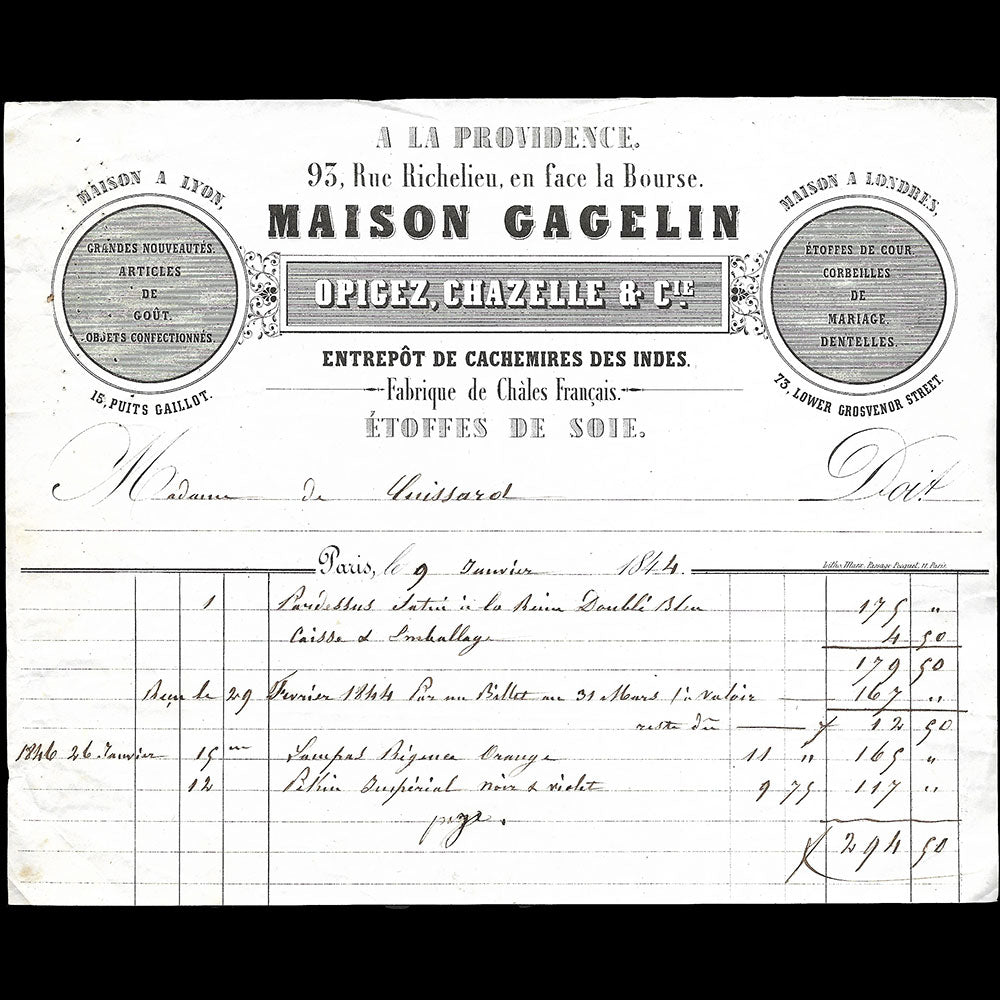 A LA PROVIDENCE.
93, Rue Richelieu, en face la Bourse.
MAISON GAGELIN
OPIGEZ, CHAZELLE & CIE.
ENTREPÔT DE CACHEMIRES DES INDES.
Fabrique de Châles Français.
ÉTOFFES DE SOIE.
MAISON A LYON,
GRANDES NOUVEAUTÉS.
ARTICLES
DE
GOÛT.
OBJETS CONFECTIONNÉS.
15, PUITS GAILLOT.
MAISON A LONDRES,
ÉTOFFES DE COUR.
CORBEILLES
DE
MARIAGE.
DENTELLES.
73, LOWER GROSVENOR STREET.
Madame de Doit
Paris, le 9 Janvier 1844.
Litho. Marx, Passage Pecquet, 11, Paris.
1 Pardessus Satin à la Reine Doublé Bleu 175 "
Caisse & Emballage 4 50
179 50
Reçu le 29 Fevrier 1844 Par un Billet au 31 Mars 167 "
reste dû 12 50
1846 26 Janvier 15 m Lampas Régence Orange 11 " 165 "
12 Pékin Impérial noir & violet 9 75 117 "
payé.
294 50